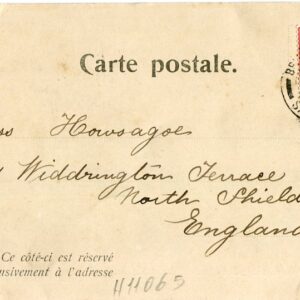 Carte postale.
ss Howsagoe
Widdrington Terrace
North Shield
England
Ce côté-ci est réservé
usivement à l'adresse
H11065